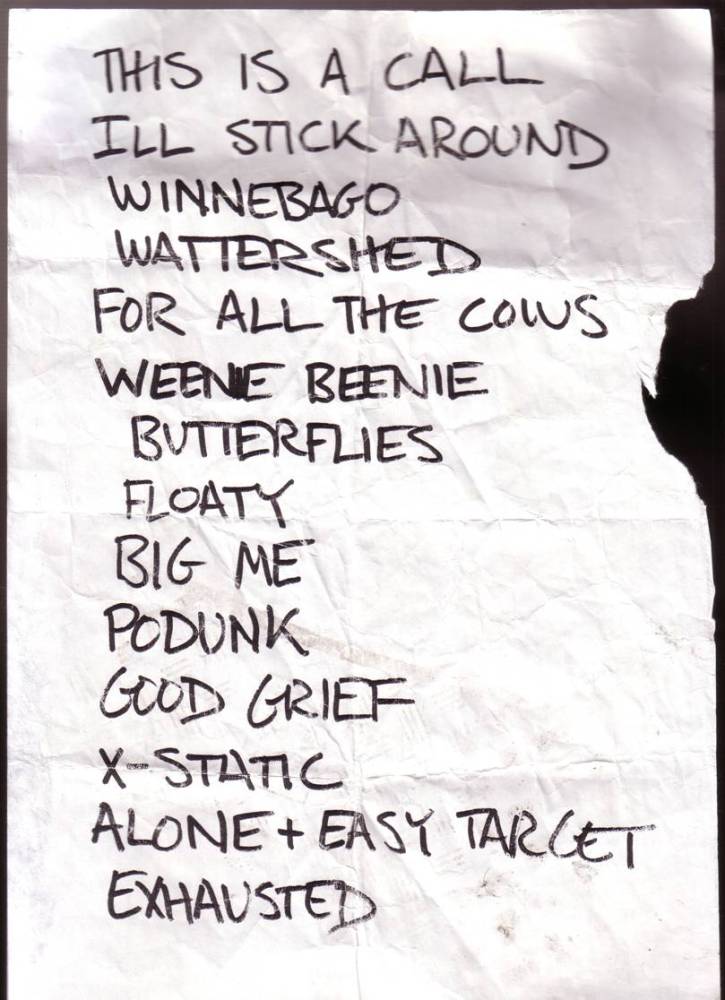 THIS IS A CALL
ILL STICK AROUND
WINNEBAGO
WATTERSHED
FOR ALL THE COWS
WEENIE BEENIE
BUTTERFLIES
FLOATY
BIG ME
PODUNK
GOOD GRIEF
X-STATIC
ALONE + EASY TARGET
EXHAUSTED